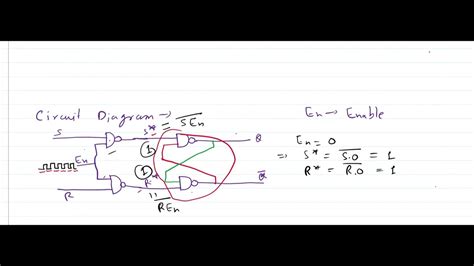 Circuit Diagram → $\overline{SEn}$
En → Enable
S S* Q
1
En
En = 0
⇒ S* = $\overline{S.0}$ = 1
R* = $\overline{R.0}$ = 1
1 R*
R $\overline{Q}$
$\overline{REn}$